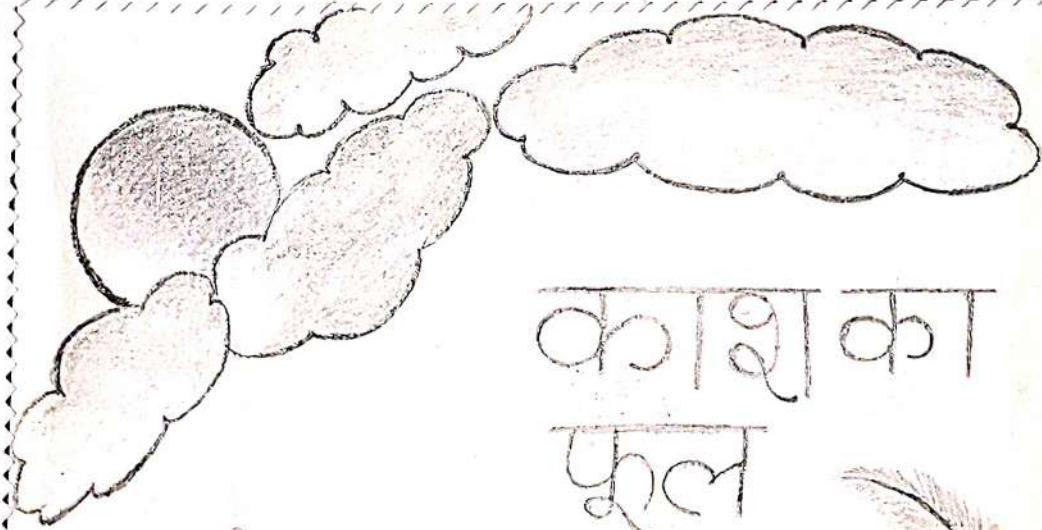 काश का
फूल